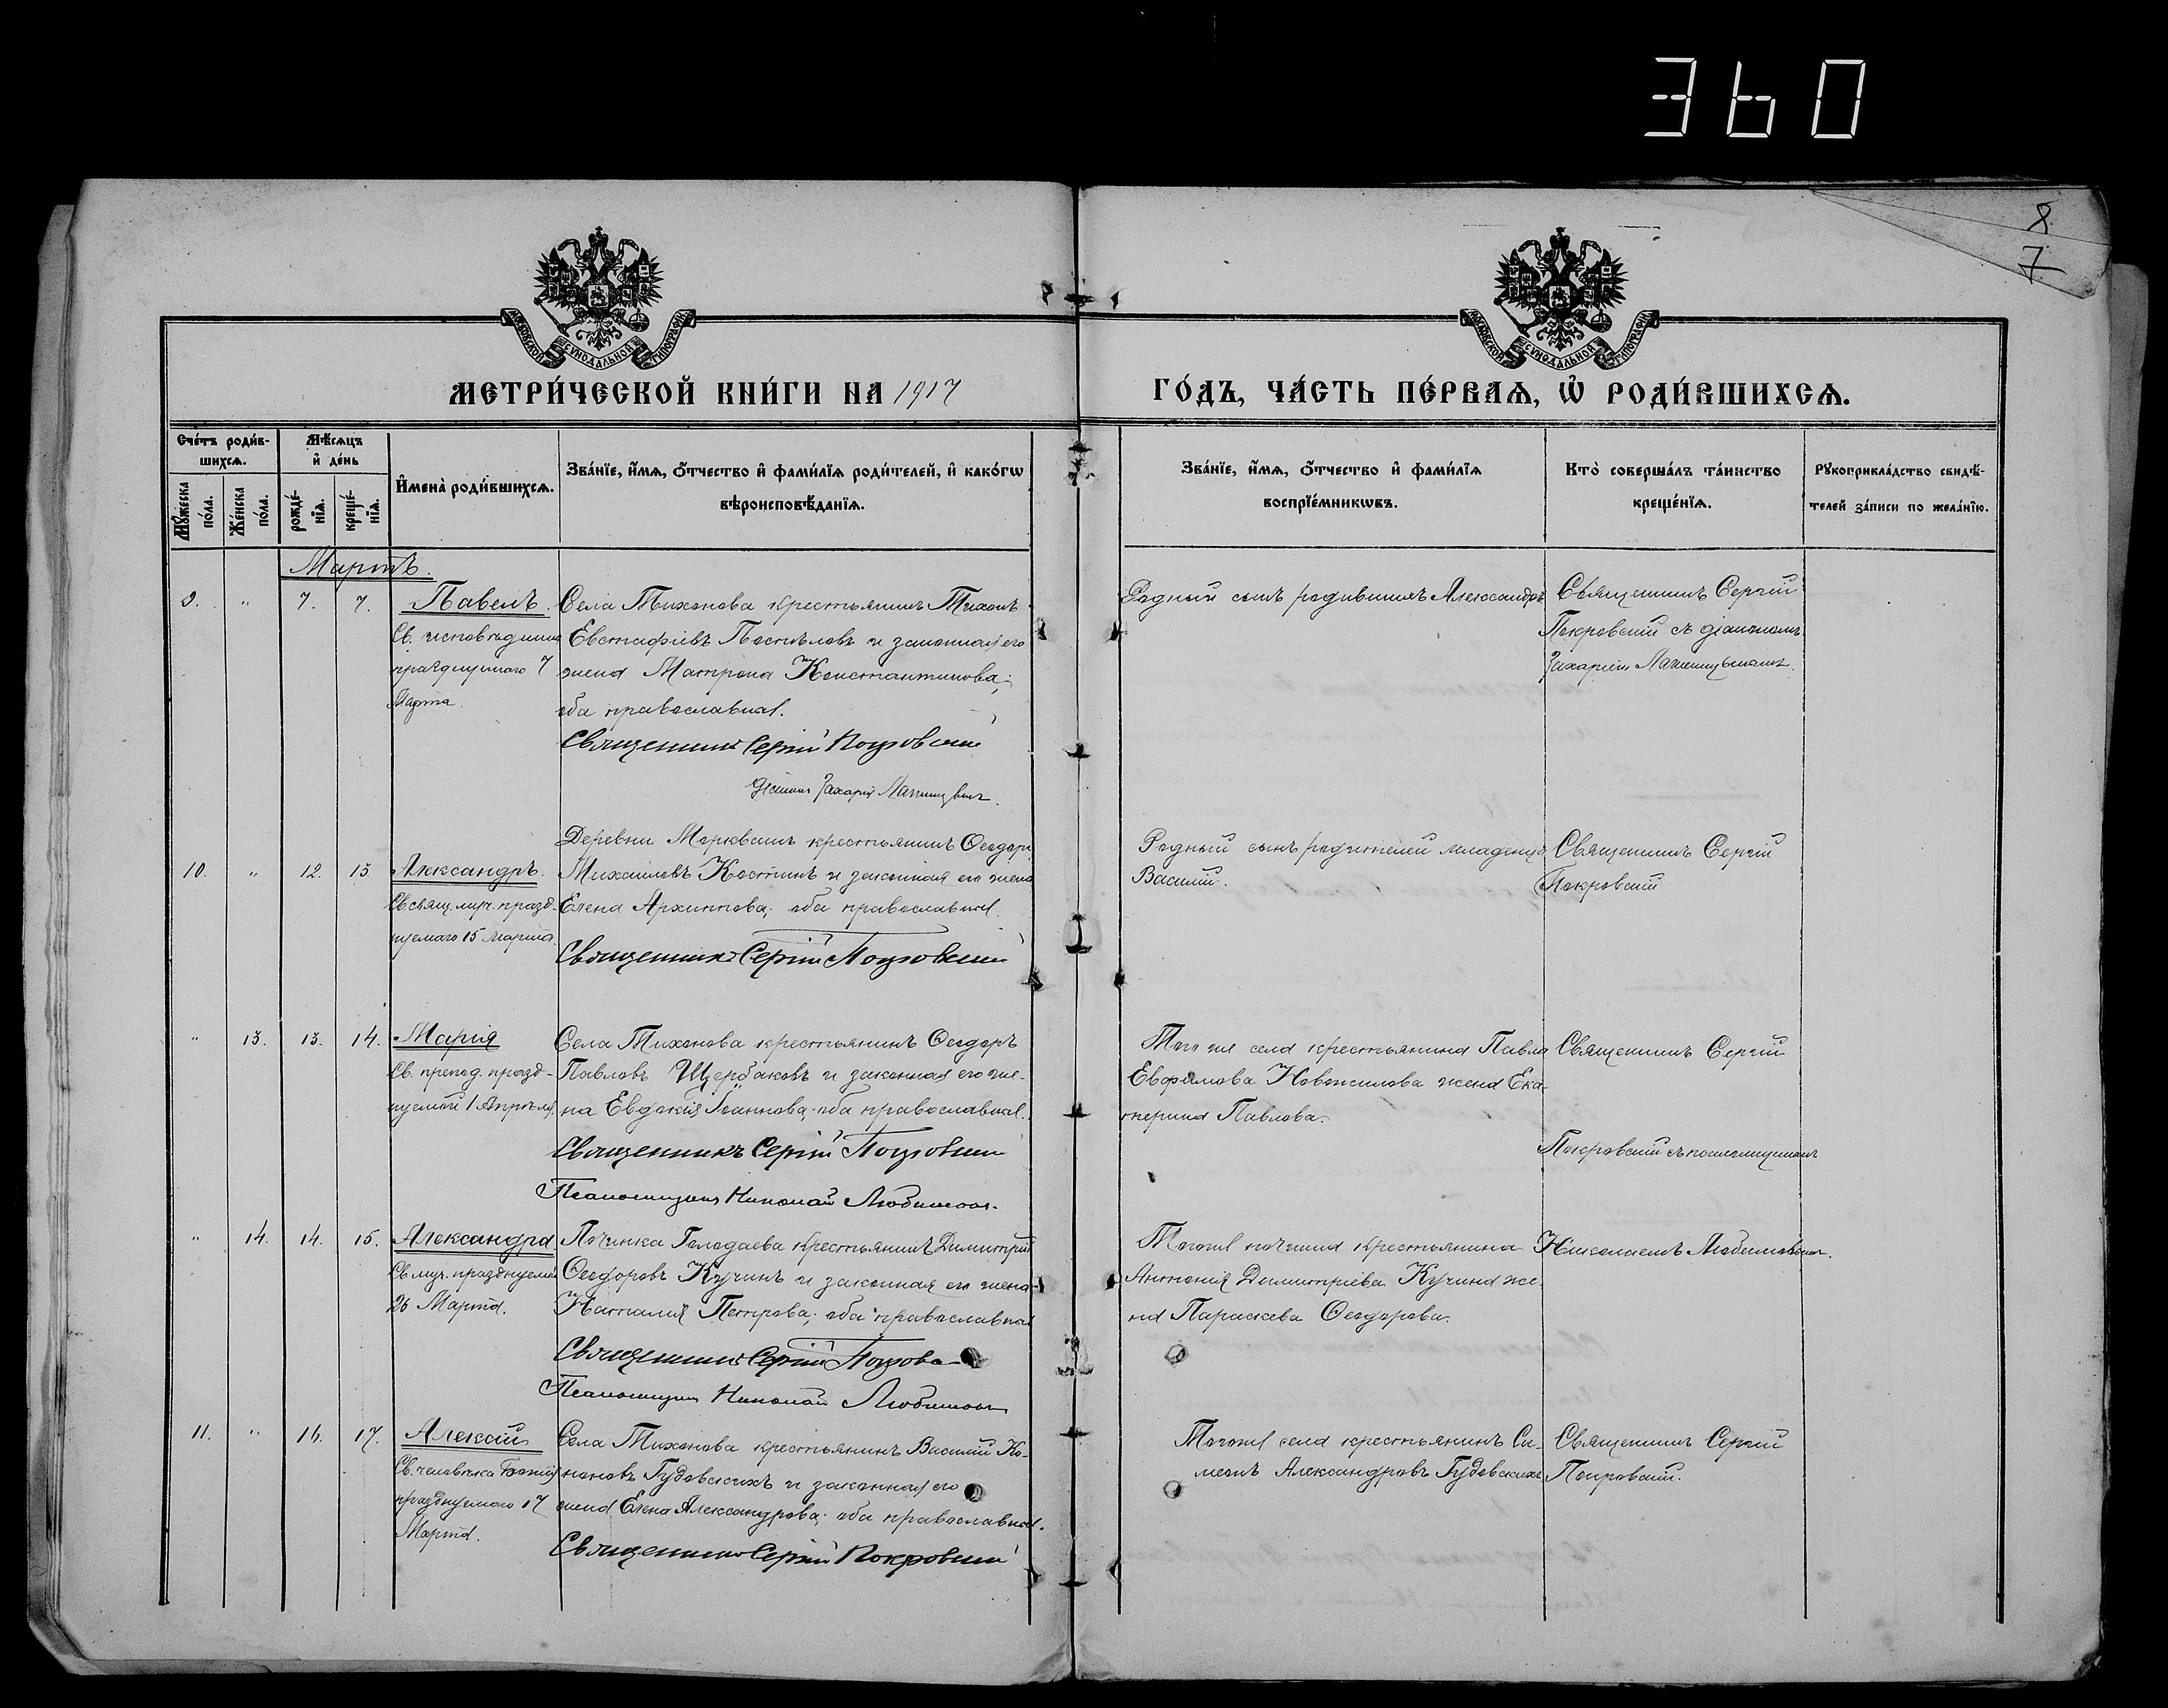 360
8
7
МОСКОВСКОЙ СѴНОДАЛЬНОЙ ТИПОГРАФІИ
МОСКОВСКОЙ СѴНОДАЛЬНОЙ ТИПОГРАФІИ
МЕТРИ́ЧЕСКОЙ КНИ́ГИ НА 1917 ГО́ДЪ, ЧА́СТЬ ПЕ́РВАѦ, Ѿ РОДИ́ВШИХСѦ.
Сче́тъ роди́в-
шихсѧ.
Мѣ́сѧцъ
и҆ де́нь
Мꙋ́жеска по́ла.
Же́нска по́ла.
рожде́-нїѧ.
креще́-нїѧ.
И҆мена̀ роди́вшихсѧ.
Зва́нїе, и҆́мѧ, ѻ҆́тчество и҆ фами́лїѧ роди́телей, и҆ како́гѡ
вѣроисповѣ́данїѧ.
Зва́нїе, и҆́мѧ, ѻ҆́тчество и҆ фами́лїѧ
воспрїе́мникѡвъ.
Кто̀ соверша́лъ та́инство
креще́нїѧ.
Рꙋкоприкла́дство свидѣ́-
телей за́писи по жела́нїю.
Мартъ.
9. " 7. 7. Павелъ.
Св. исповѣдника
празднуемаго 7
Марта.
Села Тихонова крестьянинъ Тихонъ
Евстафіевъ Поспѣловъ и законная его
жена Матрона Константинова;
оба православные.
Священникъ Сергій Покровскій
Діаконъ Захарій
Родный сынъ родившихъ Александръ
Священникъ Сергій
Покровскій съ діакономъ
Захаріею
10. " 12. 15 Александръ.
Св. свящ. муч. празд-
нуемаго 15 Марта.
Деревни Марквашъ крестьянинъ Ѳеодоръ
Михаиловъ Костинъ и законная его жена
Елена Архиппова; оба православные.
Священникъ Сергій Покровскій
Родный сынъ родителей младенца
Василій.
Священникъ Сергій
Покровскій
" 13. 13. 14. Марія
Св. препод. празд-
нуемой 1 Апрѣля.
Села Тихонова крестьянинъ Ѳеодоръ
Павловъ Щербаковъ и законная его же-
на Евдокія Іоаннова; оба православные.
Священникъ Сергій Покровскій
Псаломщикъ Николай Любимовъ.
Того же села крестьянина Павла
Евфимова Новожилова жена Ека-
терина Павлова.
Священникъ Сергій
Покровскій съ псаломщикомъ
" 14. 14. 15. Александра
Св. муч. празднуемой
26 Марта.
Починка Голодаева крестьянинъ Димитрій
Ѳеодоровъ Кучинъ и законная его жена
Наталія Петрова; оба православные
Священникъ Сергій Покровскій
Псаломщикъ Николай Любимовъ
Тогоже починка крестьянина
Антонія Димитріева Кучина же-
на Параскева Ѳеодорова.
Николаемъ Любимовымъ.
11. " 16. 17. Алексій
Св. человѣка Божія
празднуемаго 17
Марта.
Села Тихонова крестьянинъ Василій Ко-
ноновъ Гудовскихъ и законная его
жена Елена Александрова; оба православные.
Священникъ Сергій Покровскій
Тогоже села крестьянинъ Си-
меонъ Александровъ Гудовскихъ
Священникъ Сергій
Покровскій.